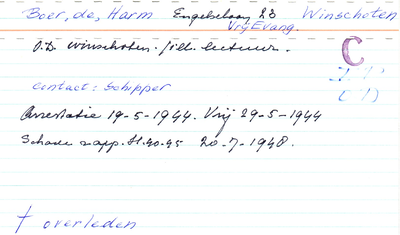 Boer, de, Harm Engelselaan 28 Winschoten
Vrij Evang.
O.D. Winschoten. / ill. lectuur.
C
contact: Schipper
Arrestatie 19-5-1944. Vrij 29-5-1944
Schade rapp. 40-45 20-7-1948.
† overleden